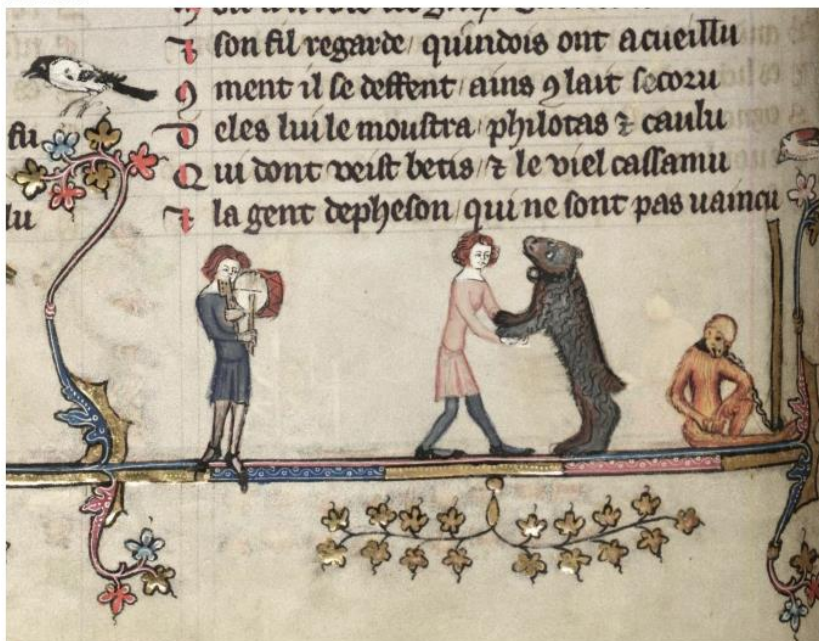 son fil regarde / quindois ont acueillu
ment il se deffent / ains
lait secoru
eles lui le moustra / philotas ⁊ caulu
Q ui dont veist betis / ⁊ le viel cassamu
⁊ la gent depheson / qui ne sont pas uaincu
fu
lu